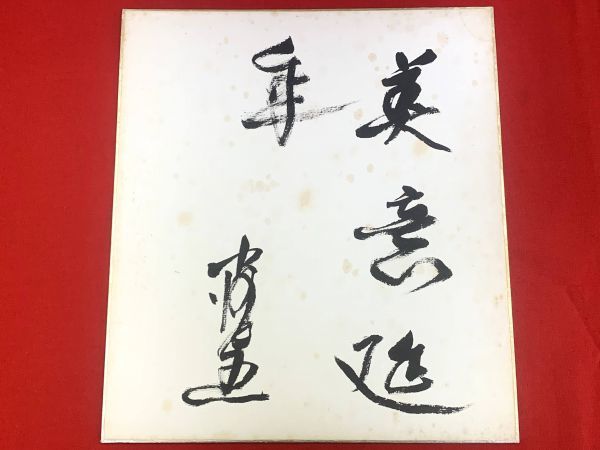 美意延
年